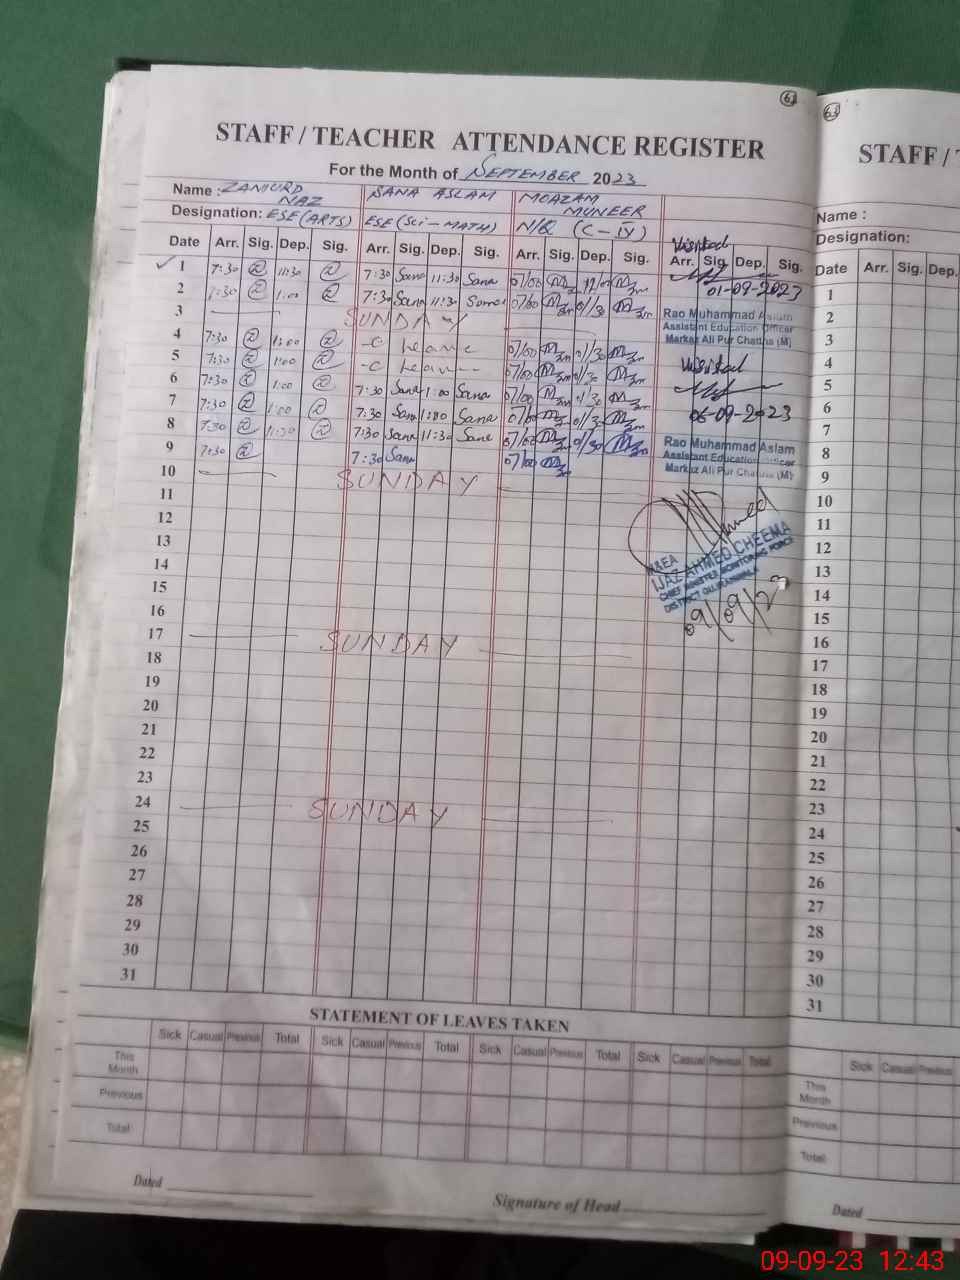 61
STAFF / TEACHER ATTENDANCE REGISTER
For the Month of SEPTEMBER 2023
Name : ZAMURD NAZ SANA ASLAM MOAZAM MUNEER
Designation: ESE (ARTS) ESE (Sci - MATH) N/Q (C - IV)
Date Arr. Sig. Dep. Sig. Arr. Sig. Dep. Sig. Arr. Sig. Dep. Sig. Arr. Sig. Dep. Sig.
1 7:30 11:30 7:30 Sana 11:30 Sana 07/00
2 7:30 1:00 7:30 Sana 11:30 Sana 07/00 01/30
3 SUNDAY
4 7:30 1:00 - C Leave 07/00 01/30
5 7:30 1:00 - C Leave 07/00 01/30
6 7:30 1:00 7:30 Sana 1:00 Sana 07/00 01/30
7 7:30 1:00 7:30 Sana 1:00 Sana 07/00 01/30
8 7:30 11:30 7:30 Sana 11:30 Sana 07/00 01/30
9 7:30 7:30 Sana 07/00
10 SUNDAY
11
12
13
14
15
16
17 SUNDAY
18
19
20
21
22
23
24 SUNDAY
25
26
27
28
29
30
31
Visited
01-09-2023
Rao Muhammad Aslam
Assistant Education Officer
Markaz Ali Pur Chattha (M)
Visited
06-09-2023
Rao Muhammad Aslam
Assistant Education Officer
Markaz Ali Pur Chattha (M)
M&EA
IJAZ AHMED CHEEMA
CHIEF MINISTER MONITORING FORCE
DISTRICT GUJRANWALA
09/09/23
STATEMENT OF LEAVES TAKEN
Sick Casual Previous Total Sick Casual Previous Total Sick Casual Previous Total Sick Casual Previous Total
This Month
Previous
Total
Dated
Signature of Head
63
STAFF / T
Name :
Designation:
Date Arr. Sig. Dep.
1
2
3
4
5
6
7
8
9
10
11
12
13
14
15
16
17
18
19
20
21
22
23
24
25
26
27
28
29
30
31
Sick Casual Previous
This Month
Previous
Total
Dated
09-09-23 12:43